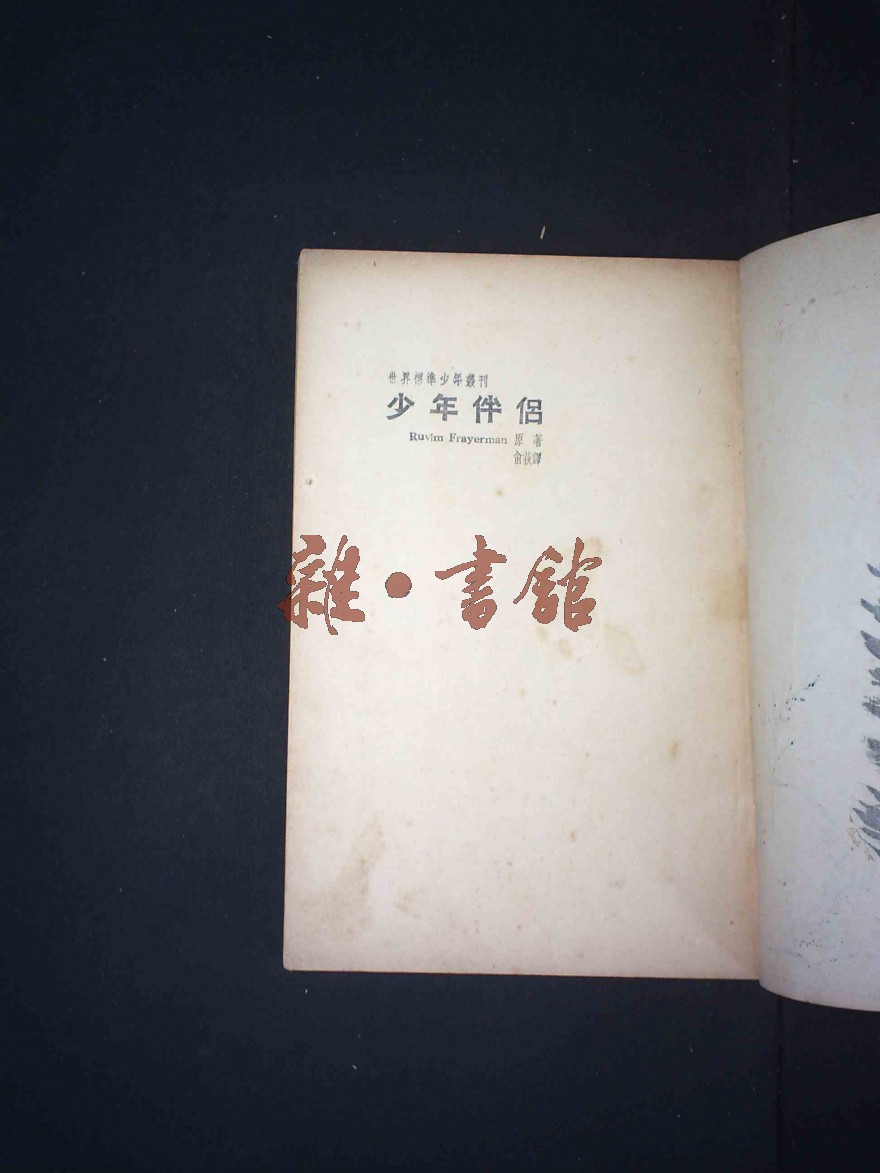 世界標準少年叢刊
少年伴侶
Ruvim Frayerman 原著
俞荻譯
雜·書館